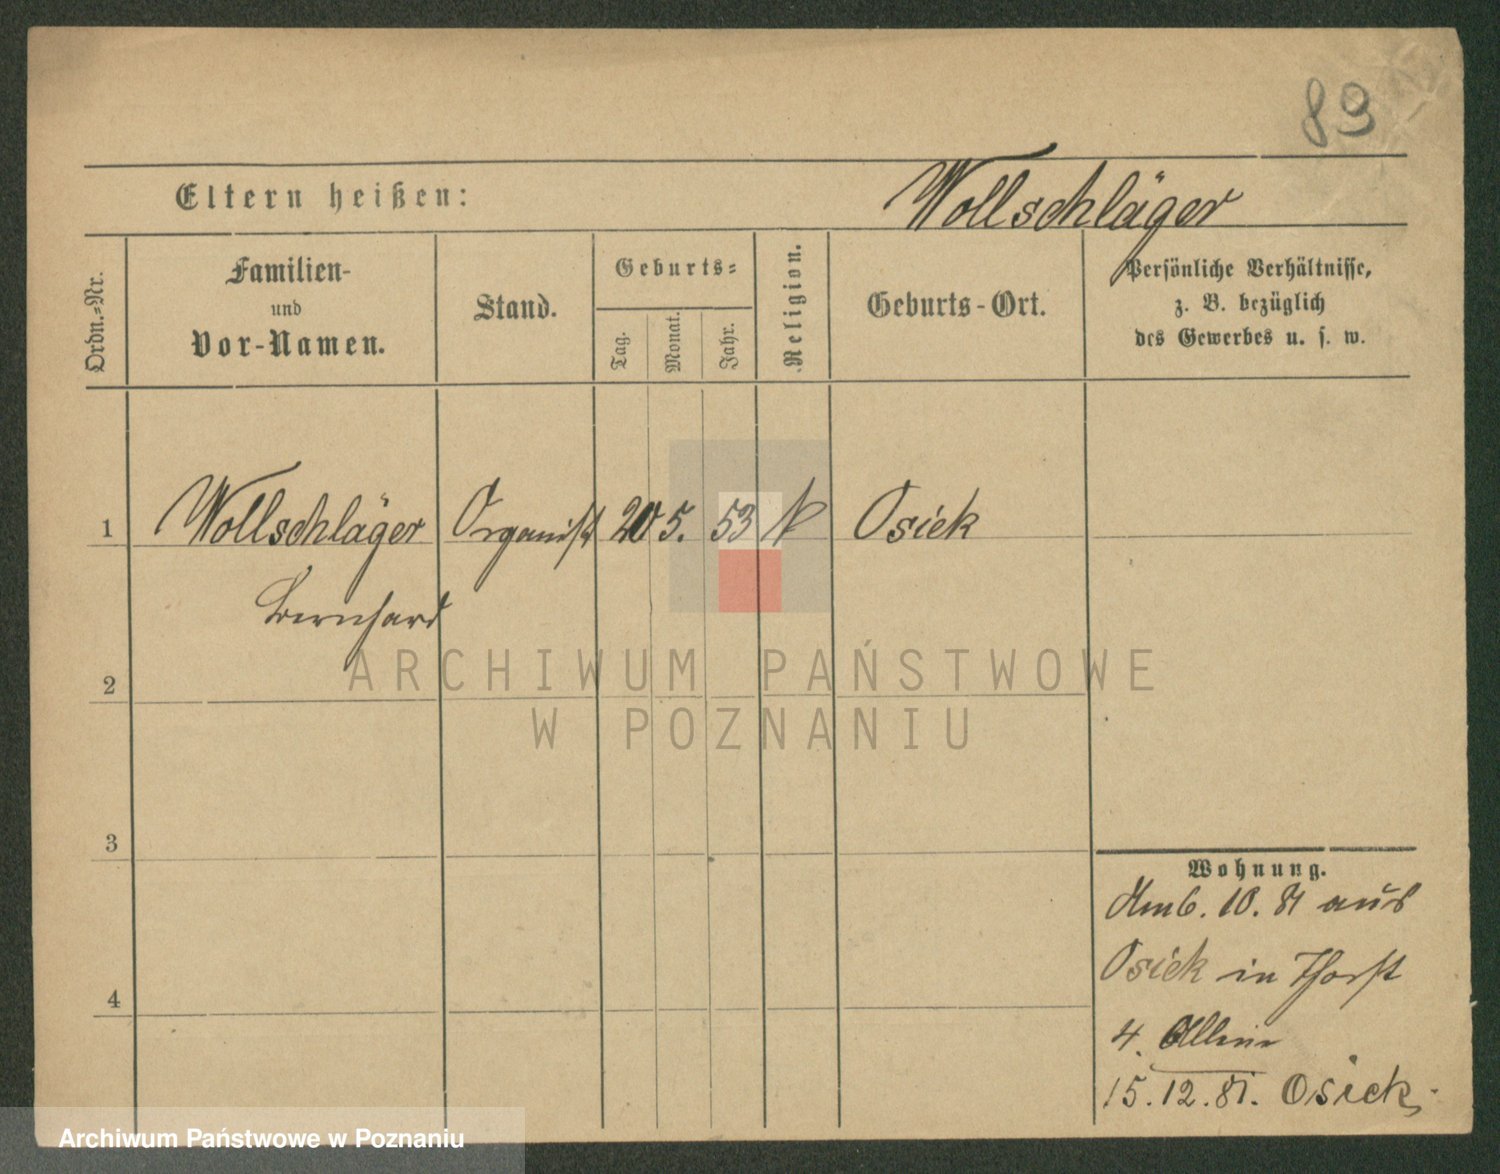 89
Eltern heißen: Wollschläger
Ordn.=Nr.
Familien-
und
Vor-Namen.
Stand.
Geburts=
Tag.
Monat.
Jahr.
Religion.
Geburts-Ort.
Persönliche Verhältnisse,
z. B. bezüglich
des Gewerbes u. s. w.
1 Wollschläger Organist 20 5. 53 K Osiek
Bernhard
2
3
4
Wohnung.
10. 81 aus
Osiek in
4. Allein
15. 12. 81. Osiek.
ARCHIWUM PAŃSTWOWE
W POZNANIU
Archiwum Państwowe w Poznaniu